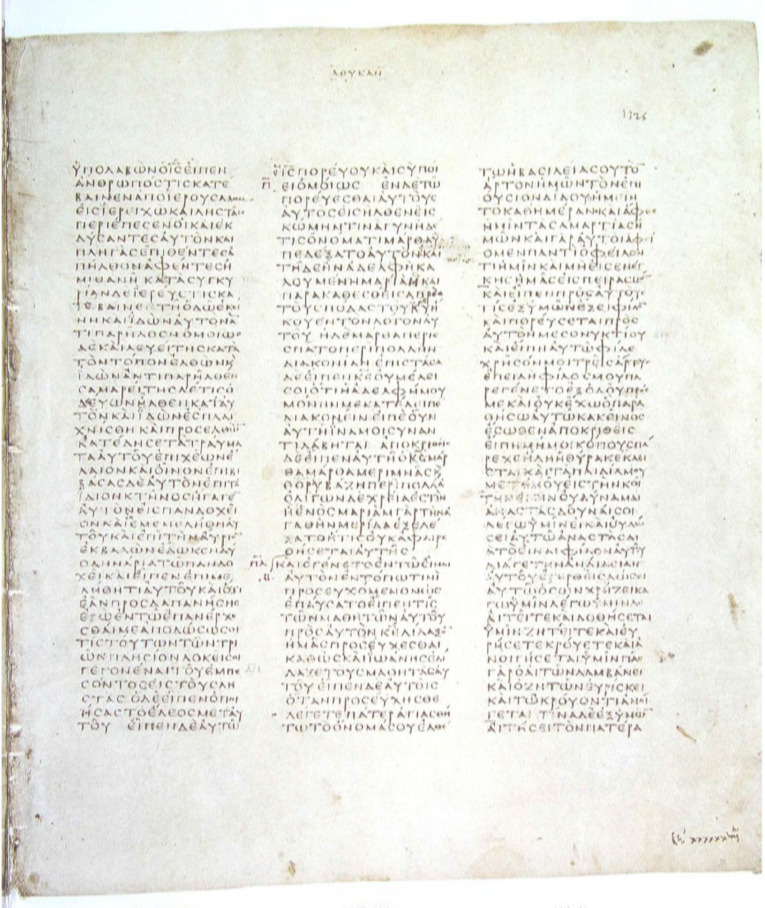 ΛΟΥΚΑΝ
1326
ΥΠΟΛΑΒΩΝΟΙϹΕΙΠΕΝ
ΑΝΘΡΩΠΟϹΤΙϹΚΑΤΕ
ΒΑΙΝΕΝΑΠΟΙΕΡΟΥϹΑΛΗΜ
ΕΙϹΙΕΡΕΙΧΩΚΑΙΛΗϹΤΑΙϹ
ΠΕΡΙΕΠΕϹΕΝΟΙΚΑΙΕΚ
ΔΥϹΑΝΤΕϹΑΥΤΟΝΚΑΙ
ΠΛΗΓΑϹΕΠΙΘΕΝΤΕϹΑ
ΠΗΛΘΟΝΑΦΕΝΤΕϹΗ
ΜΙΘΑΝΗ ΚΑΤΑϹΥΓΚΥ
ΡΙΑΝΔΕΙΕΡΕΥϹΤΙϹΚΑ
ΤΕΒΑΙΝΕΝΕΝΤΗΟΔΩΕΚΕΙ
ΝΗΚΑΙΙΔΩΝΑΥΤΟΝΑΝ
ΤΙΠΑΡΗΛΘΕΝΟΜΟΙΩϹ
ΔΕΚΑΙΛΕΥΕΙΤΗϹΚΑΤΑ
ΤΟΝΤΟΠΟΝΕΛΘΩΝΚΑΙ
ΙΔΩΝΑΝΤΙΠΑΡΗΛΘΕΝ
ϹΑΜΑΡΕΙΤΗϹΔΕΤΙϹΟ
ΔΕΥΩΝΗΛΘΕΝΚΑΤΑΥ
ΤΟΝΚΑΙΙΔΩΝΕϹΠΛΑΓ
ΧΝΙϹΘΗΚΑΙΠΡΟϹΕΛΘΩΝ
ΚΑΤΕΔΗϹΕΤΑΤΡΑΥΜΑ
ΤΑΑΥΤΟΥΕΠΙΧΕΩΝΕ
ΛΑΙΟΝΚΑΙΟΙΝΟΝΕΠΙΒΙ
ΒΑϹΑϹΔΕΑΥΤΟΝΕΠΙΤΟ
ΙΔΙΟΝΚΤΗΝΟϹΗΓΑΓΕ
ΑΥΤΟΝΕΙϹΠΑΝΔΟΧΕΙ
ΟΝΚΑΙΕΠΕΜΕΛΗΘΗΑΥ
ΤΟΥΚΑΙΕΠΙΤΗΝΑΥΡΙΟΝ
ΕΚΒΑΛΩΝΕΔΩΚΕΝΔΥ
ΟΔΗΝΑΡΙΑΤΩΠΑΝΔΟ
ΧΕΙΚΑΙΕΙΠΕΝΕΠΙΜΕ
ΛΗΘΗΤΙΑΥΤΟΥΚΑΙΟΤΙ
ΕΑΝΠΡΟϹΔΑΠΑΝΗϹΗϹ
ΕΓΩΕΝΤΩΕΠΑΝΕΡΧΕ
ϹΘΑΙΜΕΑΠΟΔΩϹΩϹΟΙ
ΤΙϹΤΟΥΤΩΝΤΩΝΤΡΙ
ΩΝΠΛΗϹΙΟΝΔΟΚΕΙϹΟΙ
ΓΕΓΟΝΕΝΑΙΤΟΥΕΜΠΕ
ϹΟΝΤΟϹΕΙϹΤΟΥϹΛΗ
ϹΤΑϹ ΟΔΕΕΙΠΕΝΟΠΟΙ
ΗϹΑϹΤΟΕΛΕΟϹΜΕΤΑΥ
ΤΟΥ ΕΙΠΕΝΔΕΑΥΤΩ
ΟΙϹΠΟΡΕΥΟΥΚΑΙϹΥΠΟΙ
Π ΕΙΟΜΟΙΩϹ ΕΝΔΕΤΩ
ΠΟΡΕΥΕϹΘΑΙΑΥΤΟΥϹ
ΑΥΤΟϹΕΙϹΗΛΘΕΝΕΙϹ
ΚΩΜΗΝΤΙΝΑΓΥΝΗΔΕ
ΤΙϹΟΝΟΜΑΤΙΜΑΡΘΑΥ
ΠΕΔΕΞΑΤΟΑΥΤΟΝΚΑΙ
ΤΗΔΕΗΝΑΔΕΛΦΗΚΑ
ΛΟΥΜΕΝΗΜΑΡΙΑΜΚΑΙ
ΠΑΡΑΚΑΘΕϹΘΕΙϹΑΠΡΟϹ
ΤΟΥϹΠΟΔΑϹΤΟΥΚΥΗ
ΚΟΥΕΝΤΟΝΛΟΓΟΝΑΥ
ΤΟΥ ΗΔΕΜΑΡΘΑΠΕΡΙΕ
ϹΠΑΤΟΠΕΡΙΠΟΛΛΗΝ
ΔΙΑΚΟΝΙΑΝΕΠΙϹΤΑϹΑ
ΔΕΕΙΠΕΝΚΕΟΥΜΕΛΕΙ
ϹΟΙΟΤΙΗΑΔΕΛΦΗΜΟΥ
ΜΟΝΗΝΜΕΚΑΤΕΛΕΙΠΕ
ΔΙΑΚΟΝΕΙΝΕΙΠΕΟΥΝ
ΑΥΤΗΙΝΑΜΟΙϹΥΝΑΝ
ΤΙΛΑΒΗΤΑΙ ΑΠΟΚΡΙΘΕΙϹ
ΔΕΕΙΠΕΝΑΥΤΗΟΚϹΜΑΡ
ΘΑΜΑΡΘΑΜΕΡΙΜΝΑϹΚΑΙ
ΘΟΡΥΒΑΖΗΠΕΡΙΠΟΛΛΑ
ΟΛΙΓΩΝΔΕΧΡΕΙΑΕϹΤΙΝ
ΗΕΝΟϹΜΑΡΙΑΜΓΑΡΤΗΝΑ
ΓΑΘΗΝΜΕΡΙΔΑΕΞΕΛΕ
ΞΑΤΟΗΤΙϹΟΥΚΑΦΑΙΡΕ
ΘΗϹΕΤΑΙΑΥΤΗϹ
ΠΑ ΚΑΙΕΓΕΝΕΤΟΕΝΤΩΕΙΝΑΙ
ΑΥΤΟΝΕΝΤΟΠΩΤΙΝΙ
ΠΡΟϹΕΥΧΟΜΕΝΟΝΩϹ
ΕΠΑΥϹΑΤΟΕΙΠΕΝΤΙϹ
ΤΩΝΜΑΘΗΤΩΝΑΥΤΟΥ
ΠΡΟϹΑΥΤΟΝΚΕΔΙΔΑΞΟΝ
ΗΜΑϹΠΡΟϹΕΥΧΕϹΘΑΙ
ΚΑΘΩϹΚΑΙΙΩΑΝΗϹΕΔΙ
ΔΑΞΕΤΟΥϹΜΑΘΗΤΑϹΑΥ
ΤΟΥΕΙΠΕΝΔΕΑΥΤΟΙϹ
ΟΤΑΝΠΡΟϹΕΥΧΗϹΘΕ
ΛΕΓΕΤΕΠΑΤΕΡΑΓΙΑϹΘΗ
ΤΩΤΟΟΝΟΜΑϹΟΥΕΛΘΕ
ΤΩΗΒΑϹΙΛΕΙΑϹΟΥΤΟΝ
ΑΡΤΟΝΗΜΩΝΤΟΝΕΠΙ
ΟΥϹΙΟΝΔΙΔΟΥΗΜΙΝ
ΤΟΚΑΘΗΜΕΡΑΝΚΑΙΑΦΕϹ
ΗΜΙΝΤΑϹΑΜΑΡΤΙΑϹΗ
ΜΩΝΚΑΙΓΑΡΑΥΤΟΙΑΦΙ
ΟΜΕΝΠΑΝΤΙΟΦΕΙΛΟΝ
ΤΙΗΜΙΝΚΑΙΜΗΕΙϹΕΝΕΓ
ΚΗϹΗΜΑϹΕΙϹΠΕΙΡΑϹΜΟΝ
ΚΑΙΕΙΠΕΝΠΡΟϹΑΥΤΟΥϹ
ΤΙϹΕΞΥΜΩΝΕΞΕΙΦΙΛΟΝ
ΚΑΙΠΟΡΕΥϹΕΤΑΙΠΡΟϹ
ΑΥΤΟΝΜΕϹΟΝΥΚΤΙΟΥ
ΚΑΙΕΙΠΗΑΥΤΩΦΙΛΕ
ΧΡΗϹΟΝΜΟΙΤΡΕΙϹΑΡΤΟΥϹ
ΕΠΕΙΔΗΦΙΛΟϹΜΟΥΠΑ
ΡΕΓΕΝΕΤΟΕΞΟΔΟΥΠΡΟϹ
ΜΕΚΑΙΟΥΚΕΧΩΟΠΑΡΑ
ΘΗϹΩΑΥΤΩΚΑΚΕΙΝΟϹ
ΕϹΩΘΕΝΑΠΟΚΡΙΘΕΙϹ
ΕΙΠΗΜΗΜΟΙΚΟΠΟΥϹΠΑ
ΡΕΧΕΗΔΗΗΘΥΡΑΚΕΚΛΕΙ
ϹΤΑΙΚΑΙΤΑΠΑΙΔΙΑΜΟΥ
ΜΕΤΕΜΟΥΕΙϹΤΗΝΚΟΙ
ΤΗΝΕΙϹΙΝΟΥΔΥΝΑΜΑΙ
ΑΝΑϹΤΑϹΔΟΥΝΑΙϹΟΙ
ΛΕΓΩΥΜΙΝΕΙΚΑΙΟΥΔΩ
ϹΕΙΑΥΤΩΑΝΑϹΤΑϹΔΙ
ΑΤΟΕΙΝΑΙΦΙΛΟΝΑΥΤΟΥ
ΔΙΑΓΕΤΗΝΑΝΑΙΔΙΑΝ
ΑΥΤΟΥΕΓΕΡΘΕΙϹΔΩϹΕΙ
ΑΥΤΩΟϹΩΝΧΡΗΖΕΙΚΑ
ΓΩΥΜΙΝΛΕΓΩΥΜΙΝΛΕΓΩ
ΑΙΤΕΙΤΕΚΑΙΔΟΘΗϹΕΤΑΙ
ΥΜΙΝΖΗΤΕΙΤΕΚΑΙΕΥ
ΡΗϹΕΤΕΚΡΟΥΕΤΕΚΑΙΑ
ΝΟΙΓΗϹΕΤΑΙΥΜΙΝΠΑϹ
ΓΑΡΟΑΙΤΩΝΛΑΜΒΑΝΕΙ
ΚΑΙΟΖΗΤΩΝΕΥΡΙϹΚΕΙ
ΚΑΙΤΩΚΡΟΥΟΝΤΙΑΝΟΙ
ΓΕΤΑΙ ΤΙΝΑΔΕΕΞΥΜΩΝ
ΑΙΤΗϹΕΙΤΟΝΠΑΤΕΡΑ